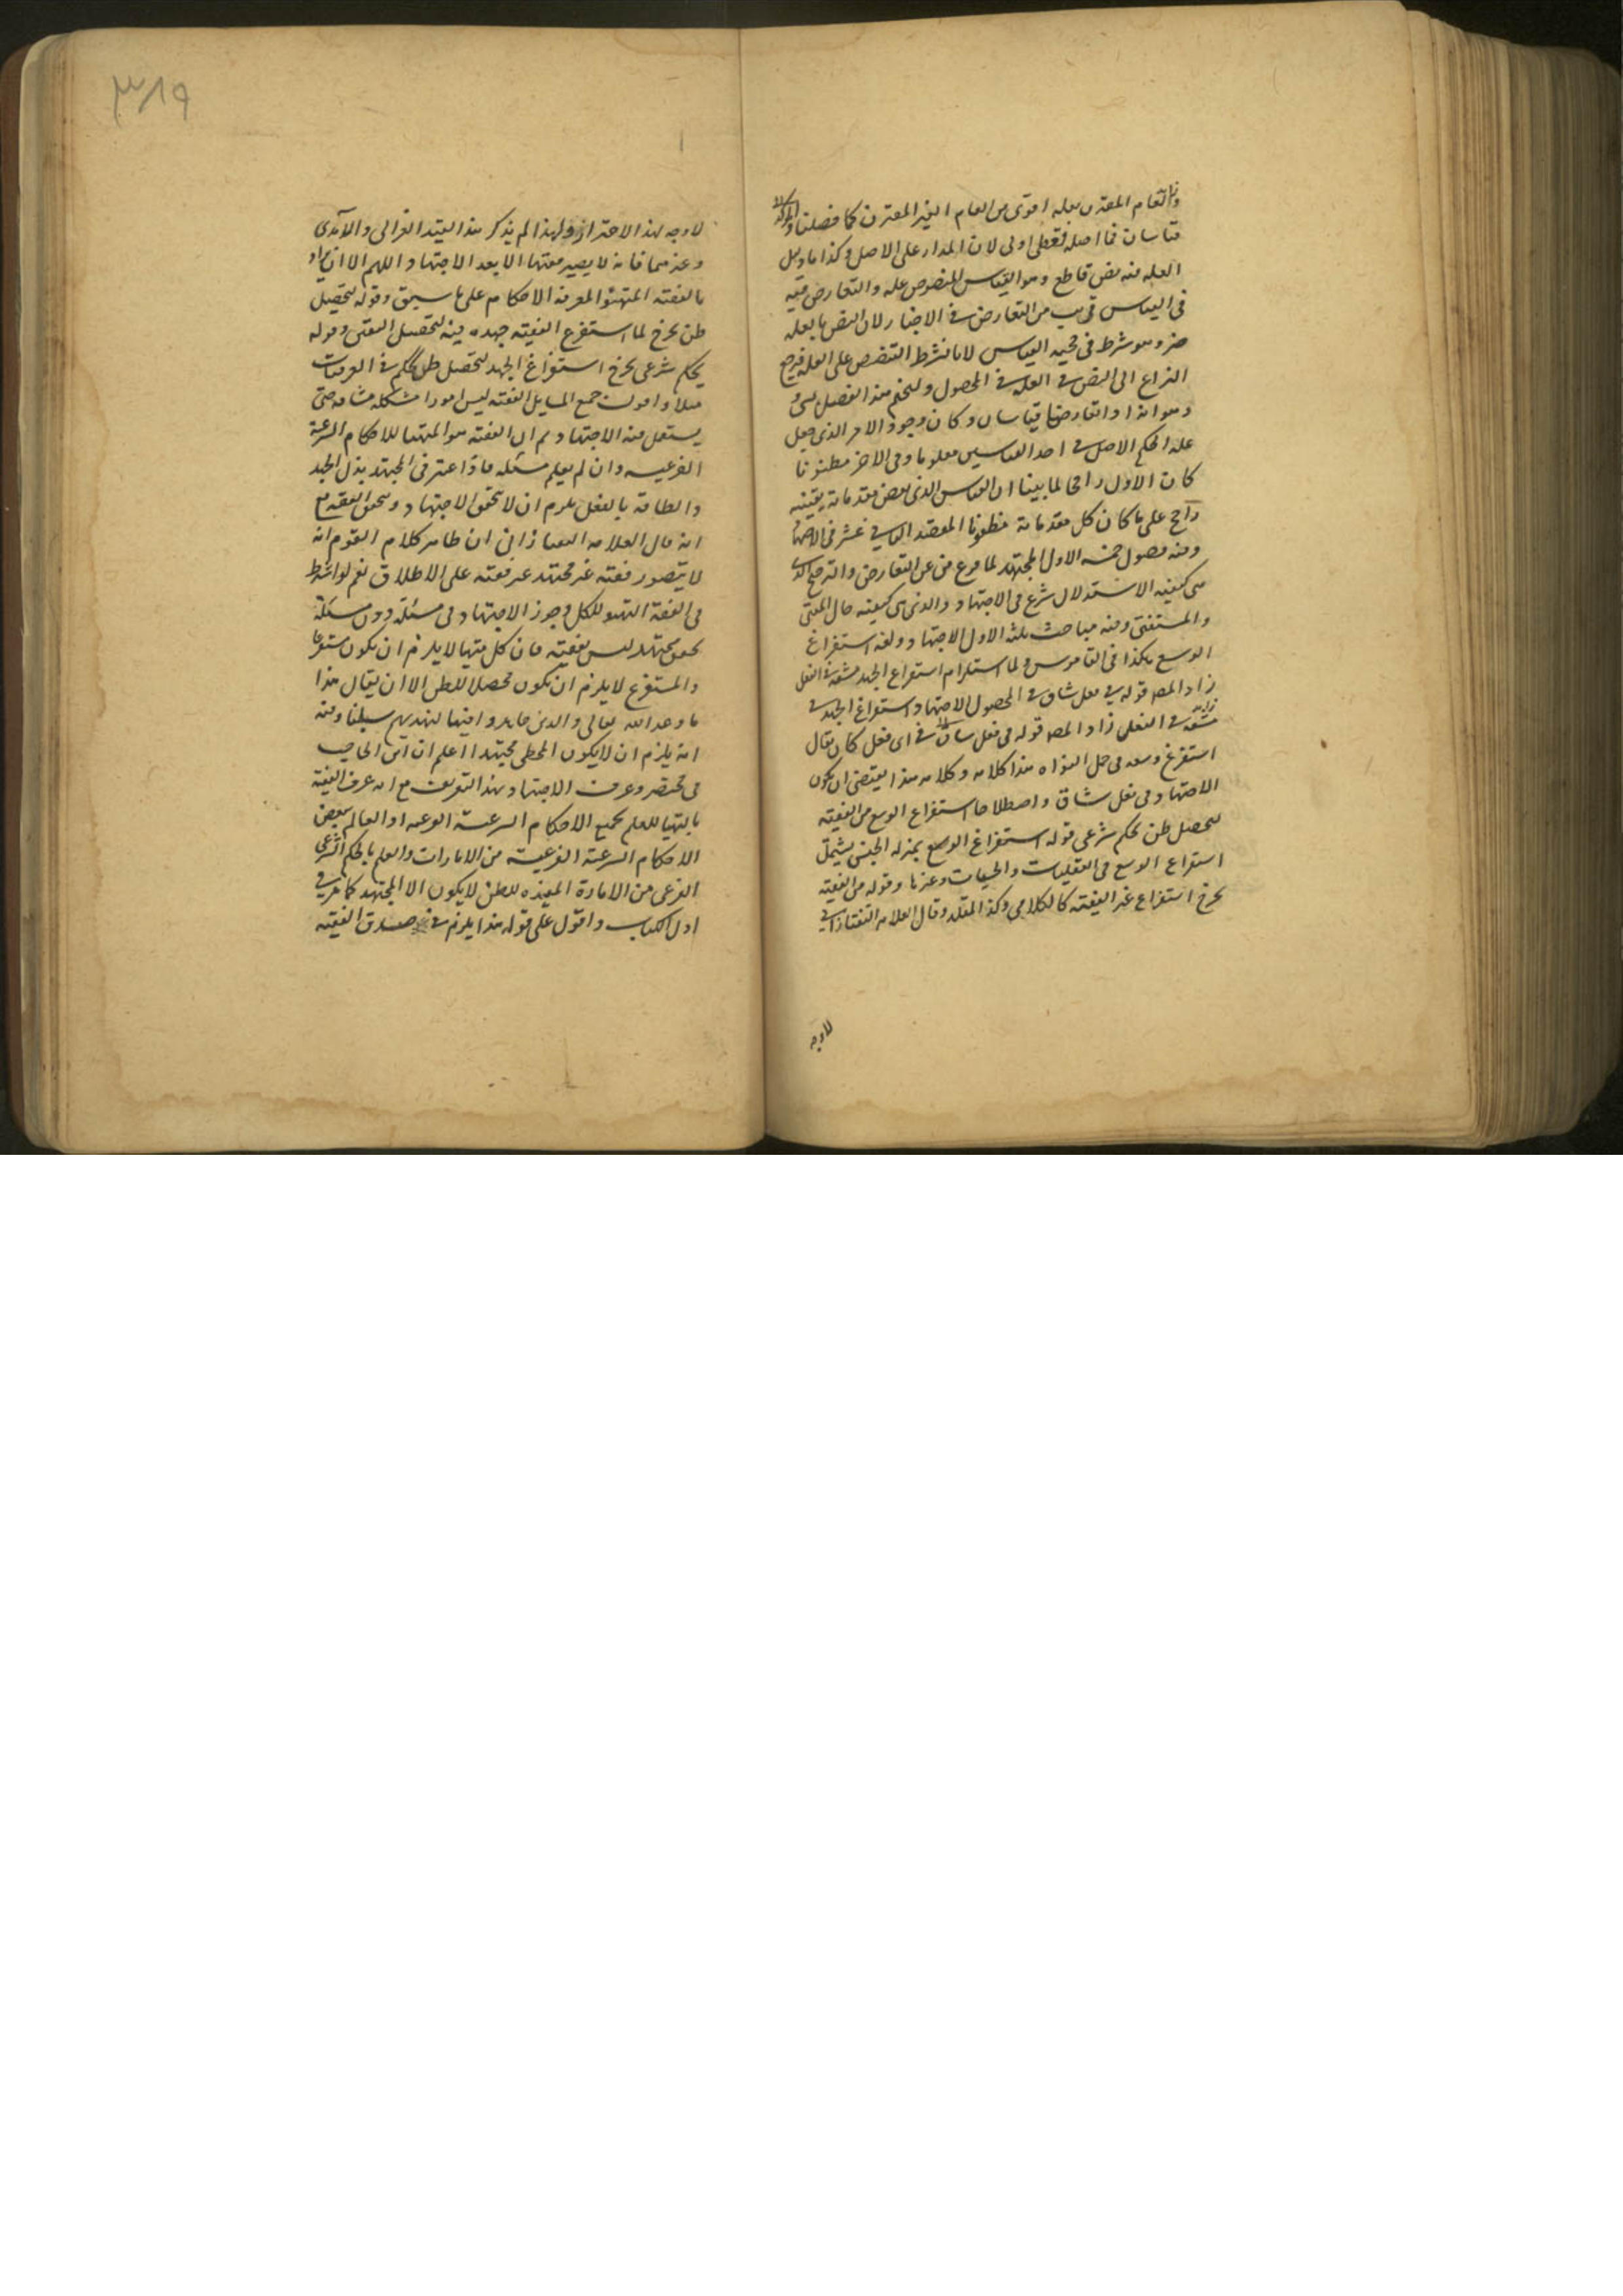 والعام المقترن بعلة اقوى من العام الغير المقترن كما فصلنا
قياسان فما اصله قطعي اولى لان المدار على الاصل وكذا ما دليل
العلة فيه نص قاطع وهو القياس المنصوص علة والتعارض فيه
في القياس قريب من التعارض في الاخبار لان النص بالعلة
جزء وهو شرط في حجية القياس لانا نشرط التنصيص على العلة فيرجع
النزاع الى النص في العلة في المحصول ولنختم هذا الفصل بشيء
وهو انه اذا تعارض قياسان وكان وجود الامر الذي جعل
علة الحكم الاصل في احد القياسين معلوما وفي الاخر مظنونا
كان الاول راجحا لما بينا ان القياس الذي بعض مقدماته يقينية
راجح على ما كان كل مقدماته مظنونا المقصد الثاني عشر في الاجتهاد
وفيه فصول خمسة الاول المجتهد لما فرغ من عن التعارض والترجيح الذي
هي كيفية الاستدلال شرع في الاجتهاد والذي هي كيفية حال المفتي
والمستفتي وفيه مباحث ثلثة الاول الاجتهاد ولغة استفراغ
الوسع هكذا في القاموس ولما استلزام استفراغ الجهد مشقة في الفعل
زاد المص قوله في فعل شاق في المحصول الاجتهاد استفراغ الجهد في
مشقة في الفعل زاد المص قوله في فعل شاق في اي فعل كان يقال
استفرغ وسعه في حمل النواة هذا كلامه وكلامه هذا يقتضي ان يكون
الاجتهاد في فعل شاق واصطلاحا استفراغ الوسع من الفقيه
لتحصيل ظن بحكم شرعي قوله استفراغ الوسع بمنزلة الجنس يشمل
استفراغ الوسع في العقليات والحسيات وغيرها وقوله من الفقيه
يخرج استفراغ غير الفقيه كالكلامي وكذا المقلد وقال العلامة التفتازاني
لاوجه
٣١٩
لا وجه لهذا الاحتراز ولهذا لم يذكر هذا القيد الغزالي والآمدي
وغيرهما فانه لا يصير فقيها الا بعد الاجتهاد اللهم الا ان يراد
بالفقيه المتهيئ لمعرفة الاحكام على ما سبق وقوله لتحصيل
ظن يخرج لما استفرغ الفقيه جهده فيه لتحصيل اليقين وقوله
بحكم شرعي يخرج استفراغ الجهد لتحصيل ظن بحكم في العرفيات
مثلا واقول جميع المسايل الفقهية ليس امورا مشكلة شاقة حتى
يستعمل فيه الاجتهاد ثم ان الفقيه هو المتهيا للاحكام الشرعية
الفرعية وان لم يعلم مسئلة فاذا اعتبر في المجتهد بذل الجهد
والطاقة بالفعل يلزم ان لا تحقق الاجتهاد وتحقق الفقه مع
انه قال العلامة التفتازاني ان ظاهر كلام القوم انه
لا يتصور فقيه غير مجتهد غير فقيه على الاطلاق نعم لو اشترط
في الفقه التهيؤ للكل وجوز الاجتهاد في مسئلة دون مسئلة
تحقق مجتهد ليس بفقيه فان كل متهيا لا يلزم ان يكون مستفرغا
والمستفرغ لا يلزم ان يكون محصلا للظن الا ان يقال هذا
ما وعد الله تعالى والذين جاهدوا فينا لنهدينهم سبلنا وفيه
انه يلزم ان لا يكون المخطي مجتهدا اعلم ان ابن الحاجب
في مختصره عرف الاجتهاد بهذا التعريف مع انه عرف الفقيه
بالتهيا للعلم بجميع الاحكام الشرعية الفرعية او العالم ببعض
الاحكام الشرعية الفرعية من الامارات والعلم بالحكم الشرعي
الفرعي من الامارة المفيدة للظن لا يكون الا المجتهد كما عرف في
اول الكتاب واقول على قوله هذا يلزم في صدق الفقيه